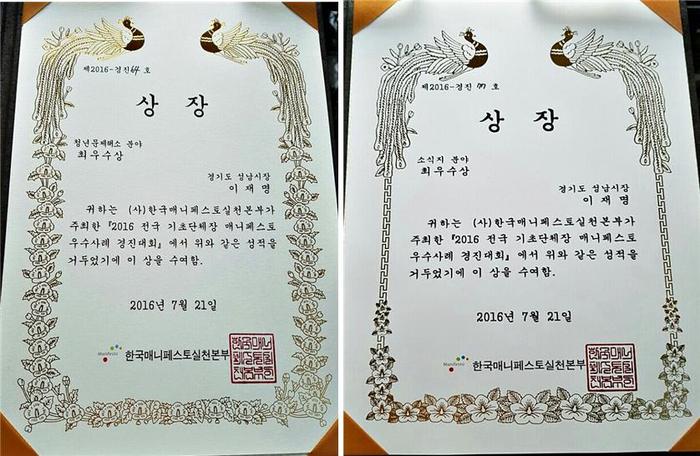 제2016-경진64 호
상 장
청년문제해소 분야
최우수상
경기도 성남시장
이 재 명
귀하는 (사)한국매니페스토실천본부가
주최한 『2016 전국 기초단체장 매니페스토
우수사례 경진대회』에서 위와 같은 성적을
거두었기에 이 상을 수여함.
2016년 7월 21일
Manifesto 한국매니페스토실천본부
제2016-경진 77 호
상 장
소식지 분야
최우수상
경기도 성남시장
이 재 명
귀하는 (사)한국매니페스토실천본부가
주최한 『2016 전국 기초단체장 매니페스토
우수사례 경진대회』에서 위와 같은 성적을
거두었기에 이 상을 수여함.
2016년 7월 21일
Manifesto 한국매니페스토실천본부